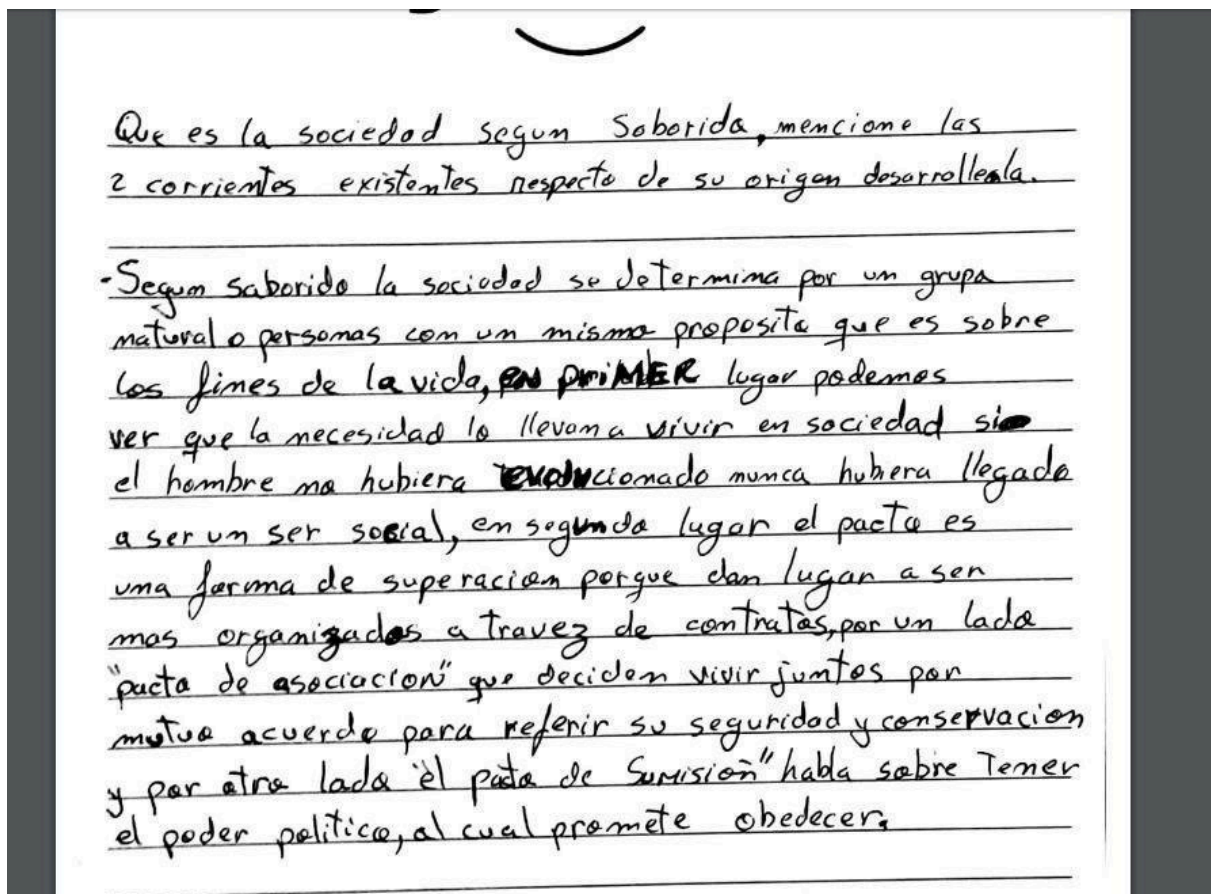 Que es la sociedad segun Saborido, mencione las
2 corrientes existentes respecto de su origen desarrollela.
-Segun saborido la sociedad se determina por un grupo
natural o personas con un mismo proposito que es sobre
los fines de la vida, en primer lugar podemos
ver que la necesidad lo llevan a vivir en sociedad si
el hombre no hubiera evolucionado nunca hubiera llegado
a ser un ser social, en segundo lugar el pacto es
una forma de superacion porque dan lugar a ser
mas organizados a travez de contratos, por un lado
"pacto de asociacion" que deciden vivir juntos por
mutuo acuerdo para referir su seguridad y conservacion
y por otro lado "el pacto de Sumisión" habla sobre Temer
el poder politico, al cual promete obedecer.